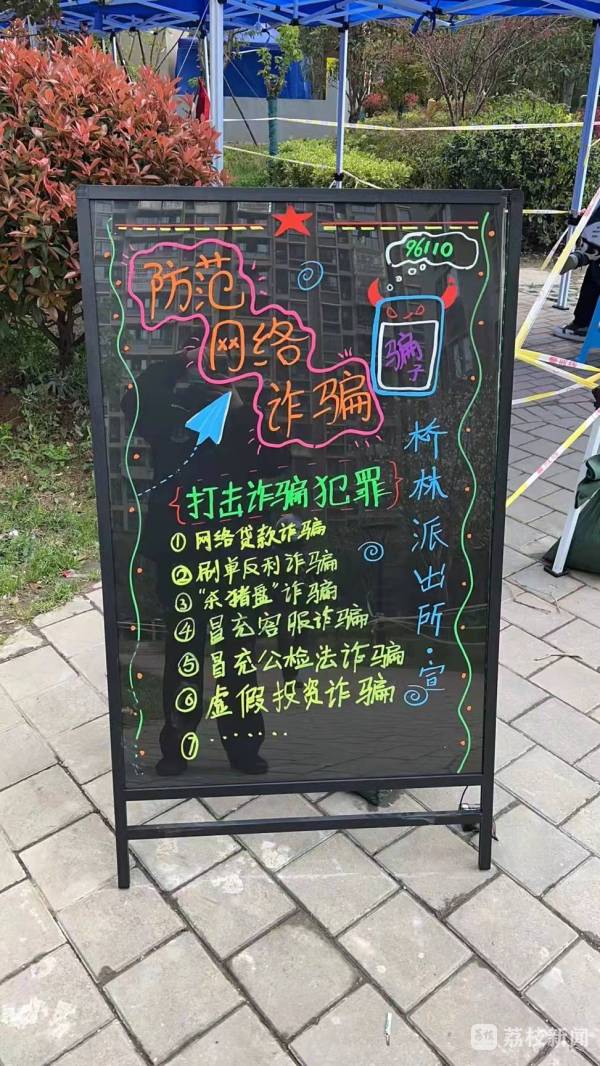 96110
防范
网络
诈骗
骗子
打击诈骗犯罪
①网络贷款诈骗
②刷单反利诈骗
③“杀猪盘”诈骗
④冒充客服诈骗
⑤冒充公检法诈骗
⑥虚假投资诈骗
⑦······
桥林派出所·宣
荔枝新闻